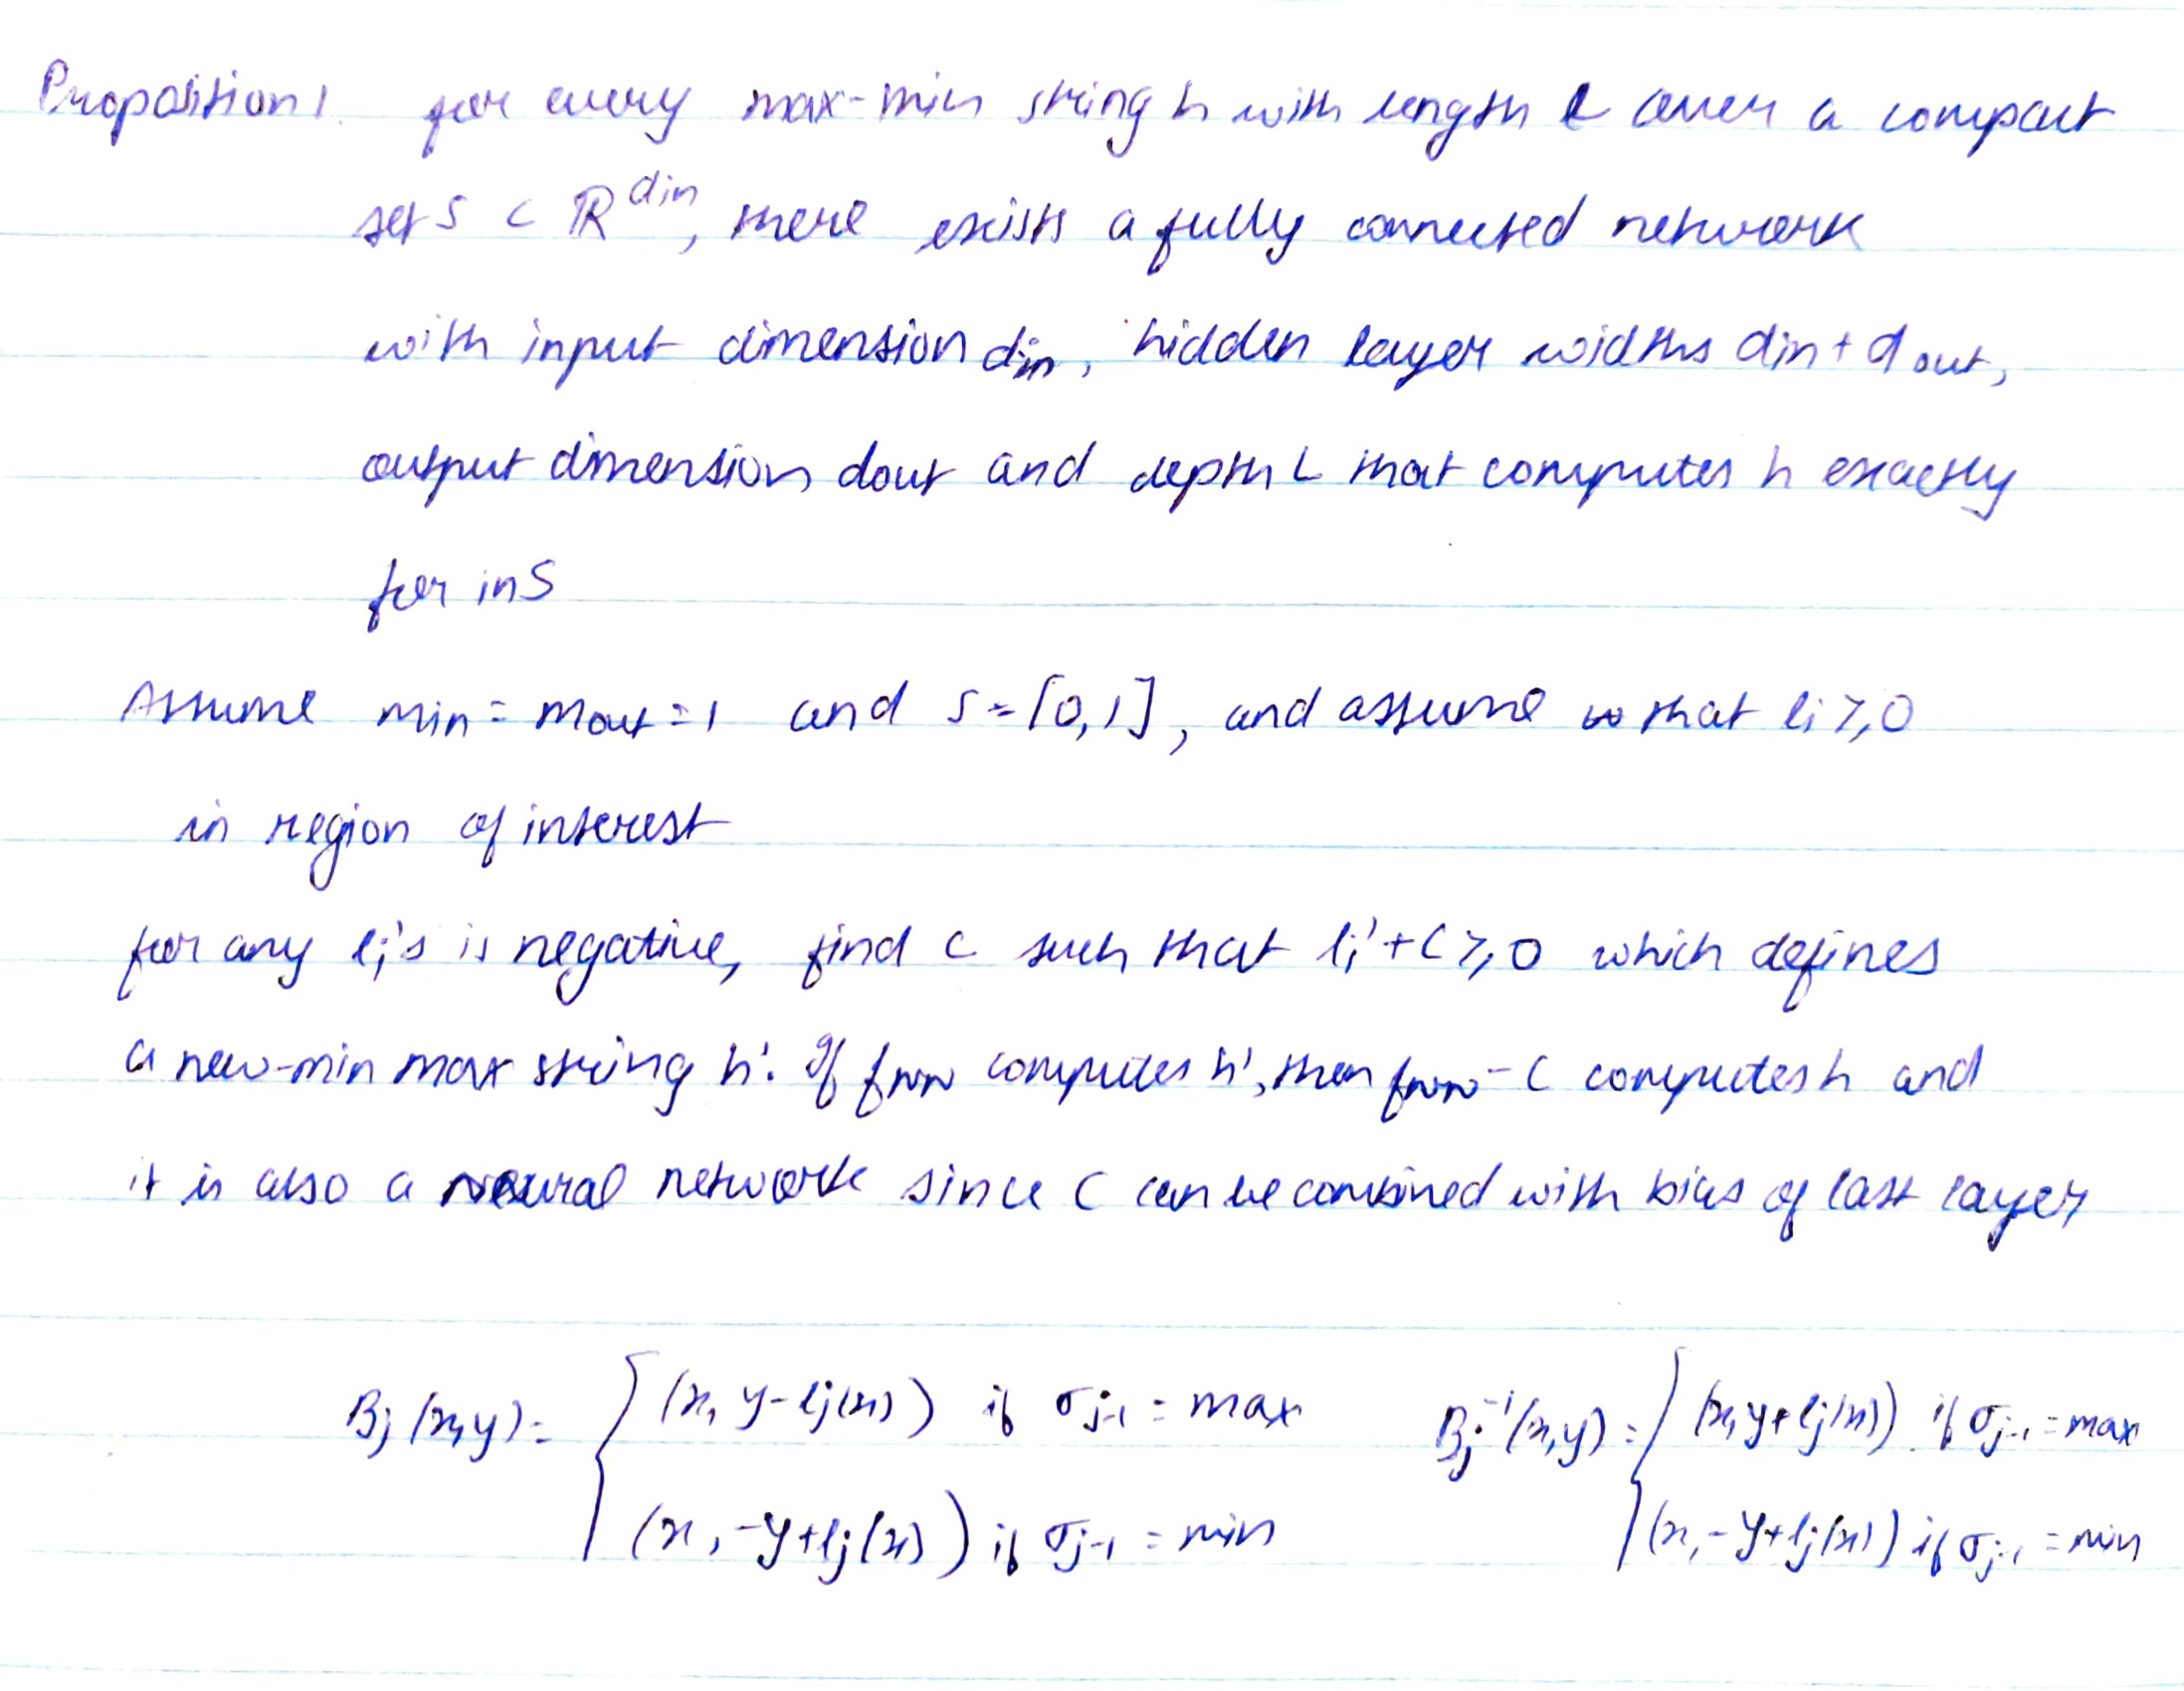 Proposition 1. for every max-min string h with length L over a compact
set S ⊂ ℝ^din, there exists a fully connected network
with input dimension din, hidden layer widths din + dout,
output dimension dout and depth L that computes h exactly
for in S
Assume min = mout = 1 and S = [0,1], and assume that li ≥ 0
in region of interest
for any lj's is negative, find C such that li' + C ≥ 0 which defines
a new-min max string h'. If fNN computes h', then fNN - C computes h and
it is also a neural network since C can be combined with bias of last layer
Bj(x,y) = { (x, y - lj(x)) if σj-1 = max Bj^-1(x,y) = { (x, y + lj(x)) if σj-1 = max
(x, -y + lj(x)) if σj-1 = min (x, -y + lj(x)) if σj-1 = min